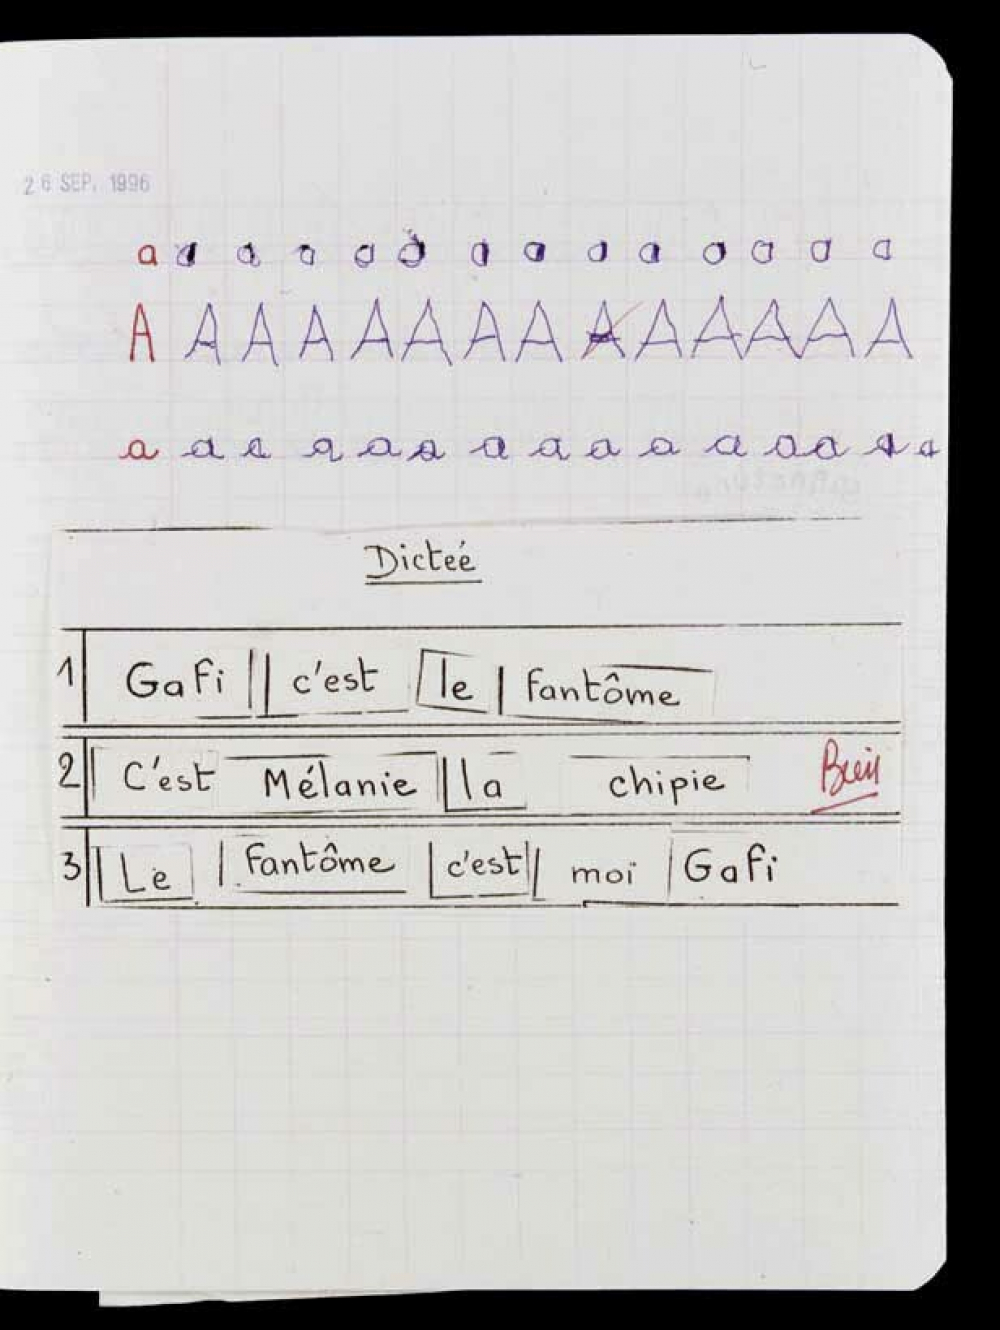 26 SEP. 1996
a a a a a a a a a a a a a a
A A A A A A A A A A A A A A
a a a a a a a a a a a a a a a
Dicteé
1 Gafi c'est le fantôme
2 C'est Mélanie la chipie Bien
3 Le fantôme c'est moi Gafi